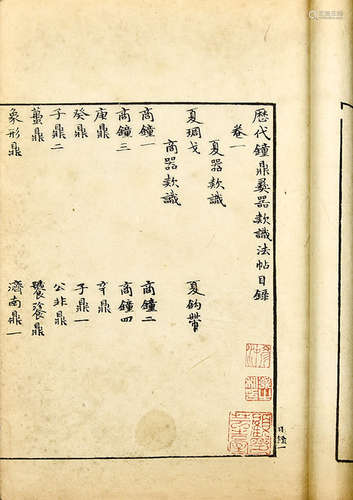 歷代鐘鼎彝器款識法帖目錄
卷一
夏器款識
夏琱戈 夏鈎帶
商器款識
商鐘一 商鐘二
商鐘三 商鐘四
庚鼎 辛鼎
癸鼎 子鼎一
子鼎二 公非鼎
蠆鼎 饕餮鼎
象形鼎 濟南鼎一
目錄一